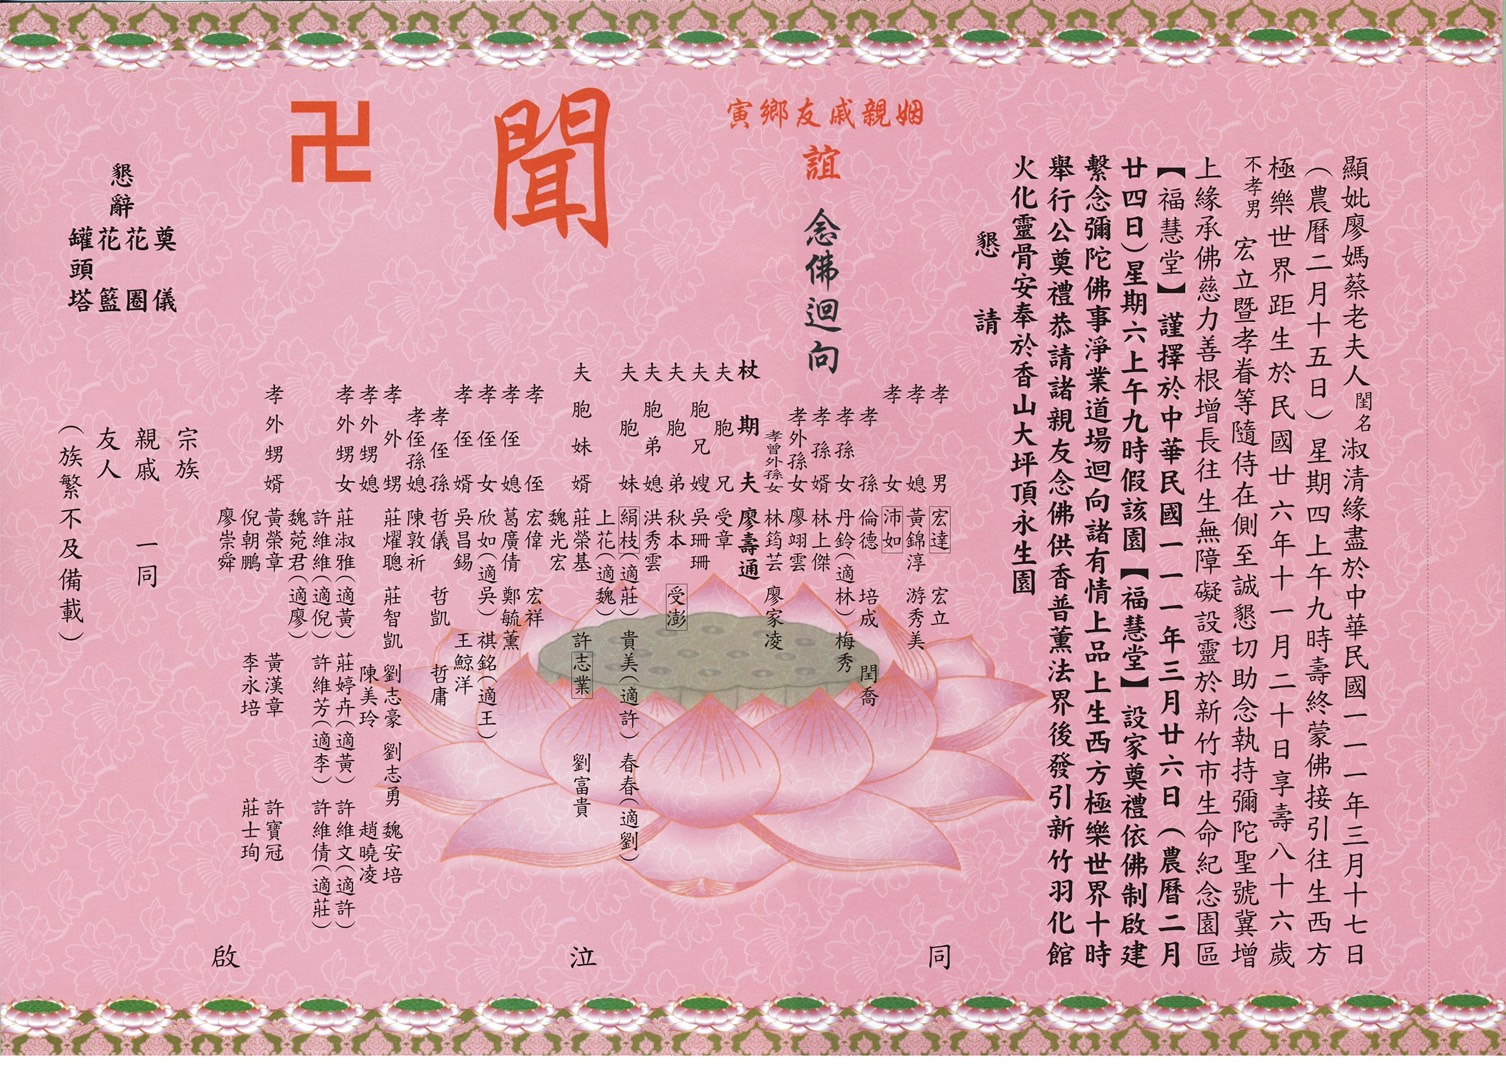 顯妣廖媽蔡老夫人閨名淑清緣盡於中華民國一一一年三月十七日
（農曆二月十五日）星期四上午九時壽終蒙佛接引往生西方
極樂世界距生於民國廿六年十一月二十日享壽八十六歲
不孝男宏立暨孝眷等隨侍在側至誠懇切助念執持彌陀聖號冀增
上緣承佛慈力善根增長往生無障礙設靈於新竹市生命紀念園區
【福慧堂】謹擇於中華民國一一一年三月廿六日（農曆二月
廿四日）星期六上午九時假該園【福慧堂】設家奠禮依佛制啟建
繫念彌陀佛事淨業道場迴向諸有情上品上生西方極樂世界十時
舉行公奠禮恭請諸親友念佛供香普薰法界後發引新竹羽化館
火化靈骨安奉於香山大坪頂永生園
懇請
姻親戚友鄉寅
誼 念佛迴向
聞
卍
孝男 宏達 宏立
孝媳 黃錦淳 游秀美
孝女 沛如
孝孫 倫德 培成 閏喬
孝孫女 丹鈴（適林） 梅秀
孝孫婿 林上傑
孝外孫女 廖翊雲
孝曾外孫女 林筠芸 廖家凌
杖期夫 廖壽通
夫胞兄 受章
夫胞兄嫂 吳珊珊
夫胞弟 秋本 受澎
夫胞弟媳 洪秀雲
夫胞妹 絹枝（適莊） 貴美（適許） 春春（適劉）
上花（適魏）
夫胞妹婿 莊榮基 許志業 劉富貴
魏光宏
孝侄 宏偉 宏祥
孝侄媳 葛廣倩 鄭毓薰
孝侄女 欣如（適吳） 祺銘（適王）
孝侄婿 吳昌錫 王鯨洋
孝侄孫 哲儀 哲凱 哲庸
孝侄孫媳 陳敦祈
孝外甥 莊燿聰 莊智凱 劉志豪 劉志勇 魏安培
孝外甥媳 陳美玲 趙曉凌
孝外甥女 莊淑雅（適黃） 莊婷卉（適黃） 許維文（適許）
許維維（適倪） 許維芳（適李） 許維倩（適莊）
魏菀君（適廖）
孝外甥婿 黃榮章 黃漢章 許寶冠
倪朝鵬 李永培 莊士珣
廖崇舜
同泣啟
宗族
親戚 一同
友人
（族繁不及備載）
懇辭
奠儀
花圈
花籃
罐頭塔